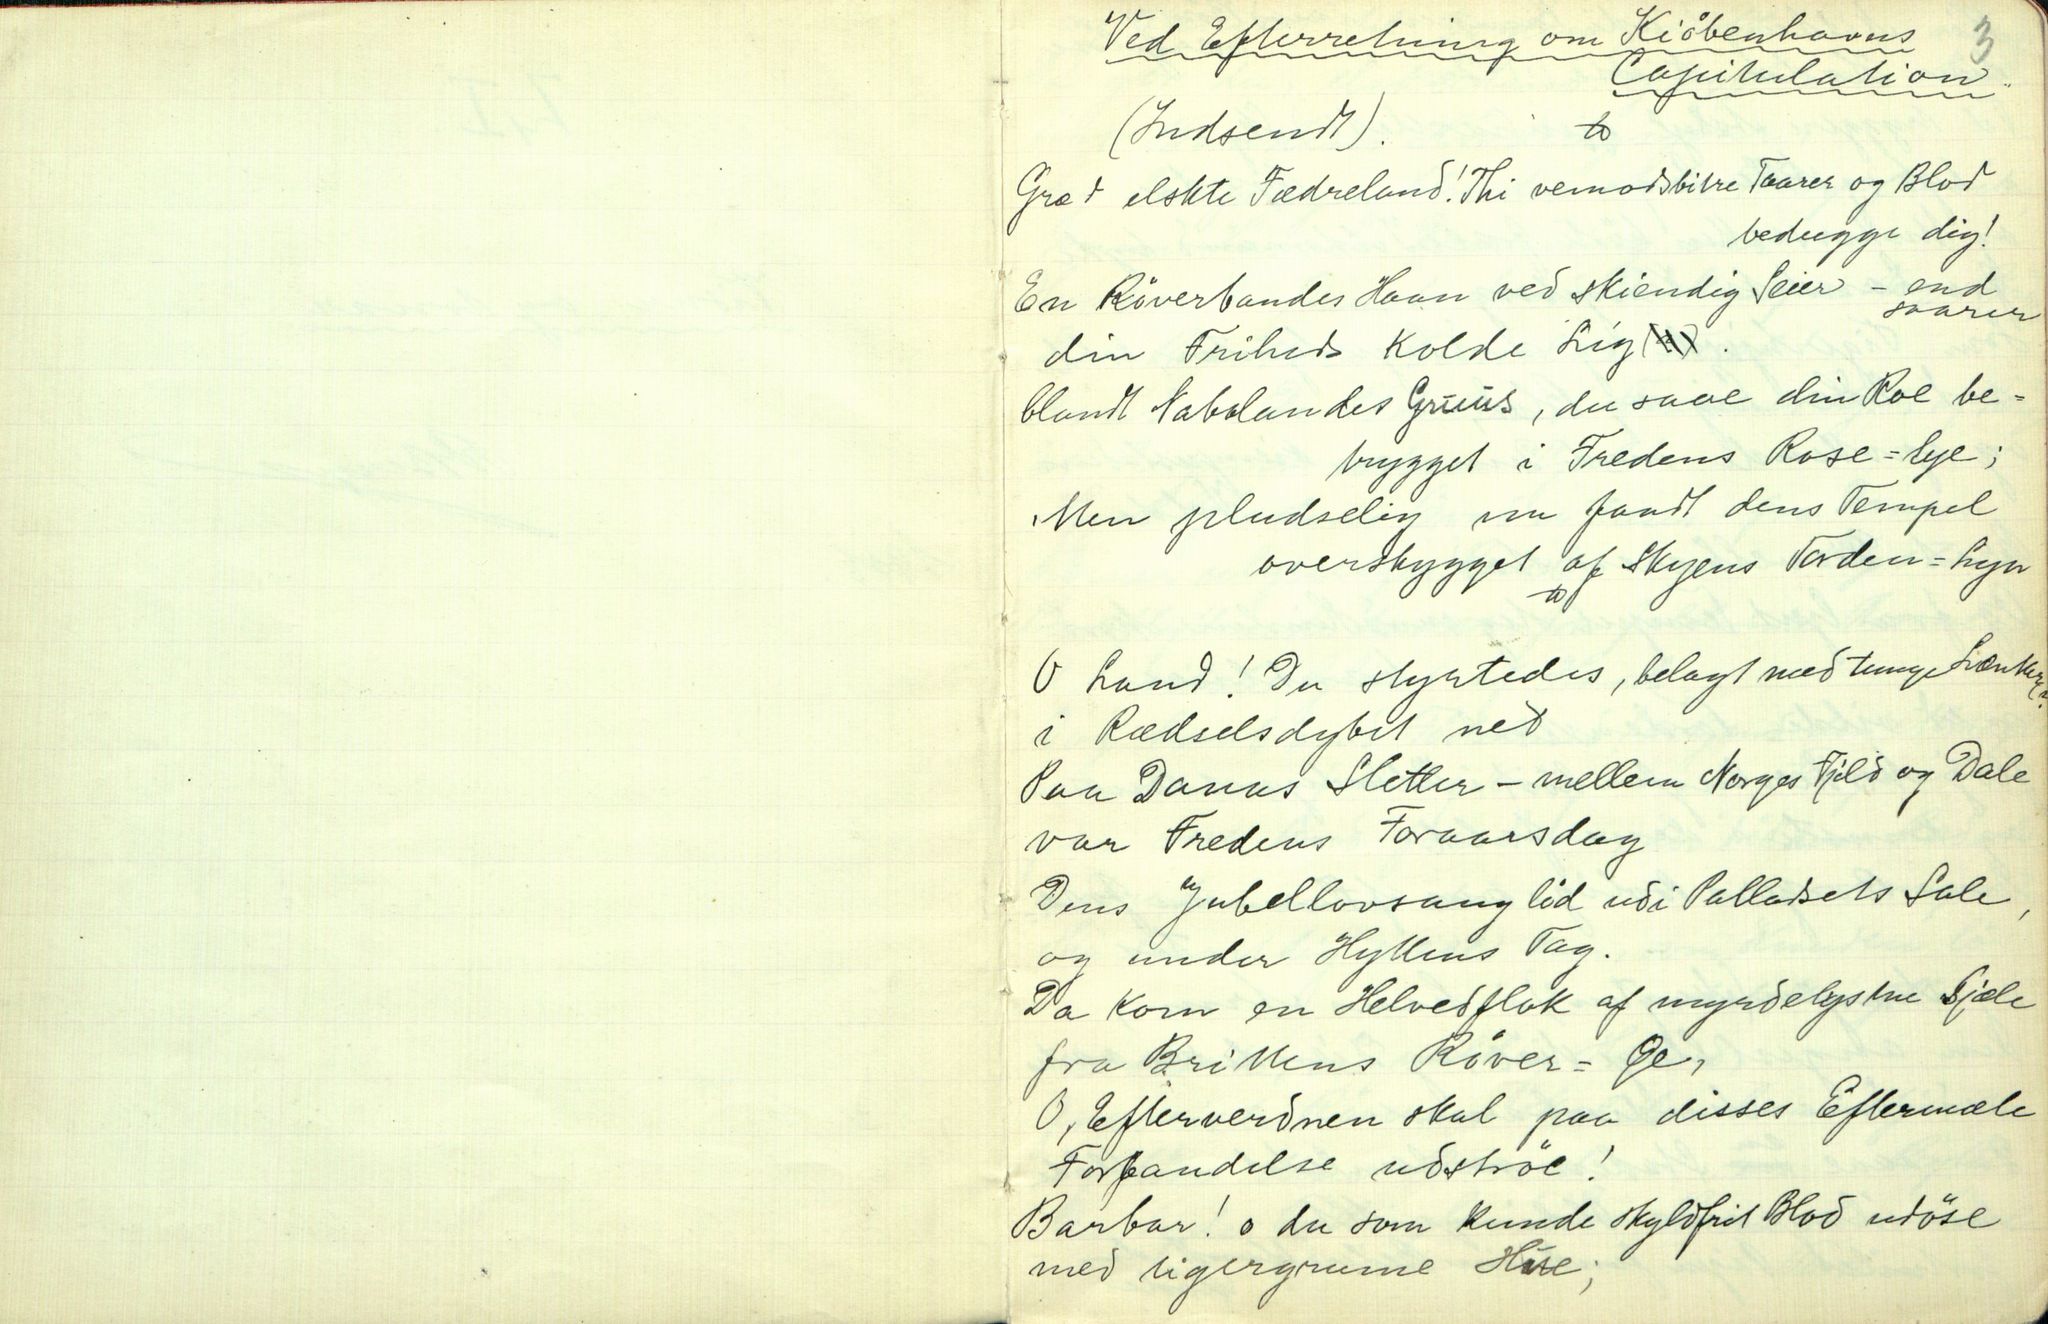 3
Ved Efterretning om Kiöbenhavns
Capitulation.
(Indsendt).
Græd elskte Fædreland! Thi vemodsbitre Taarer og Blod
bedugge dig!
En Röverbandes Haan ved skiendig Seier - end
saarer
din Friheds kolde Lig
blandt Nabolandes Gruus, du saae din Roe be=
trygget i Fredens Rose=lye;
Men pludselig nu fandt dens Tempel
overskygget af Skyens Torden=Lyn
O Land! Du styrtedes, belagt med tunge Lænker,
i Rædselsdybet ned
Paa Danas Sletter - mellem Norges Fjeld og Dale
var Fredens Foraarsdag
Dens Jubellovsang löd udi Palladsets Sale,
og under Hyttens Tag.
Da kom en Helvedflok af myrdelystne Sjæle
fra Brittens Röver= Øe,
O, Efterverdnen skal paa disses Eftermæle
Forbandelse udströe!
Barbar! o du som kunde skyldfrit Blod udöse
med tigergrumme Hue;